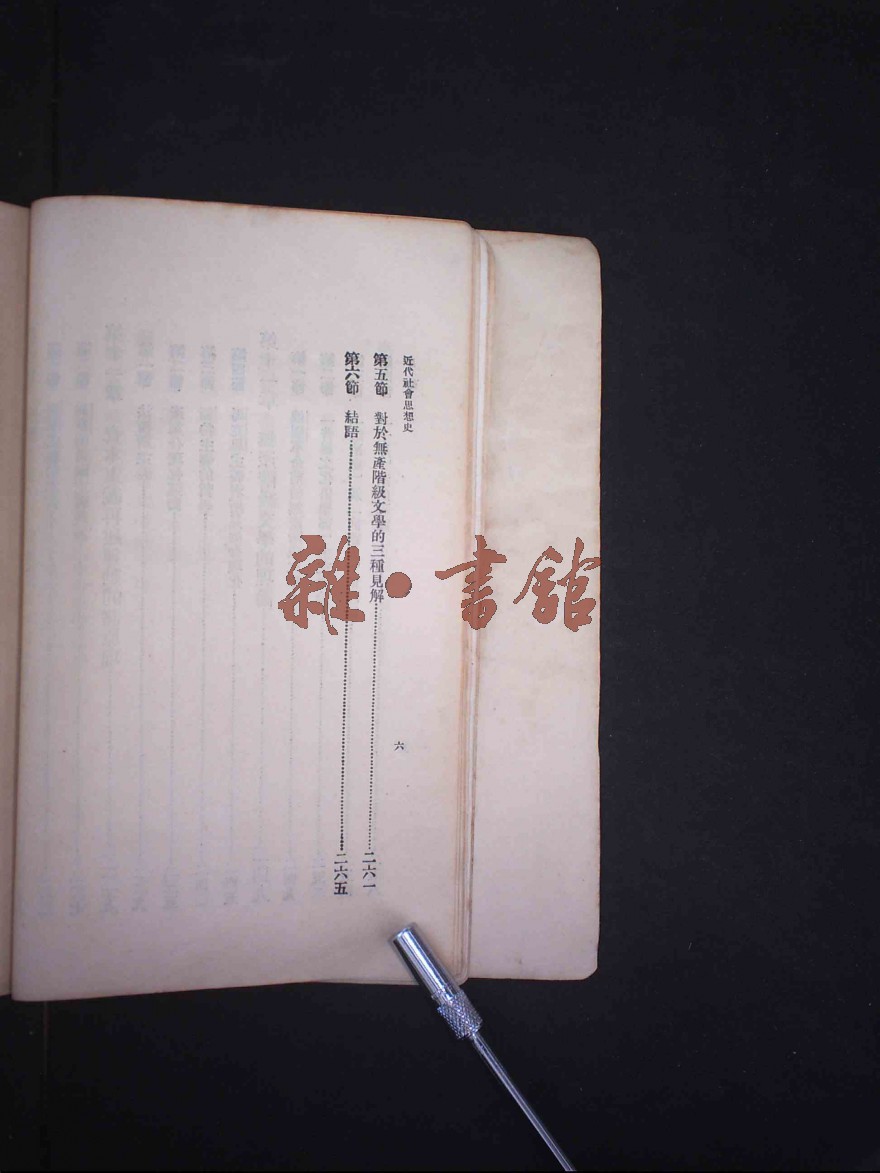 近代社會思想史
第五節 對於無產階級文學的三種見解……二六一
第六節 結語……二六五
六
雜·書館